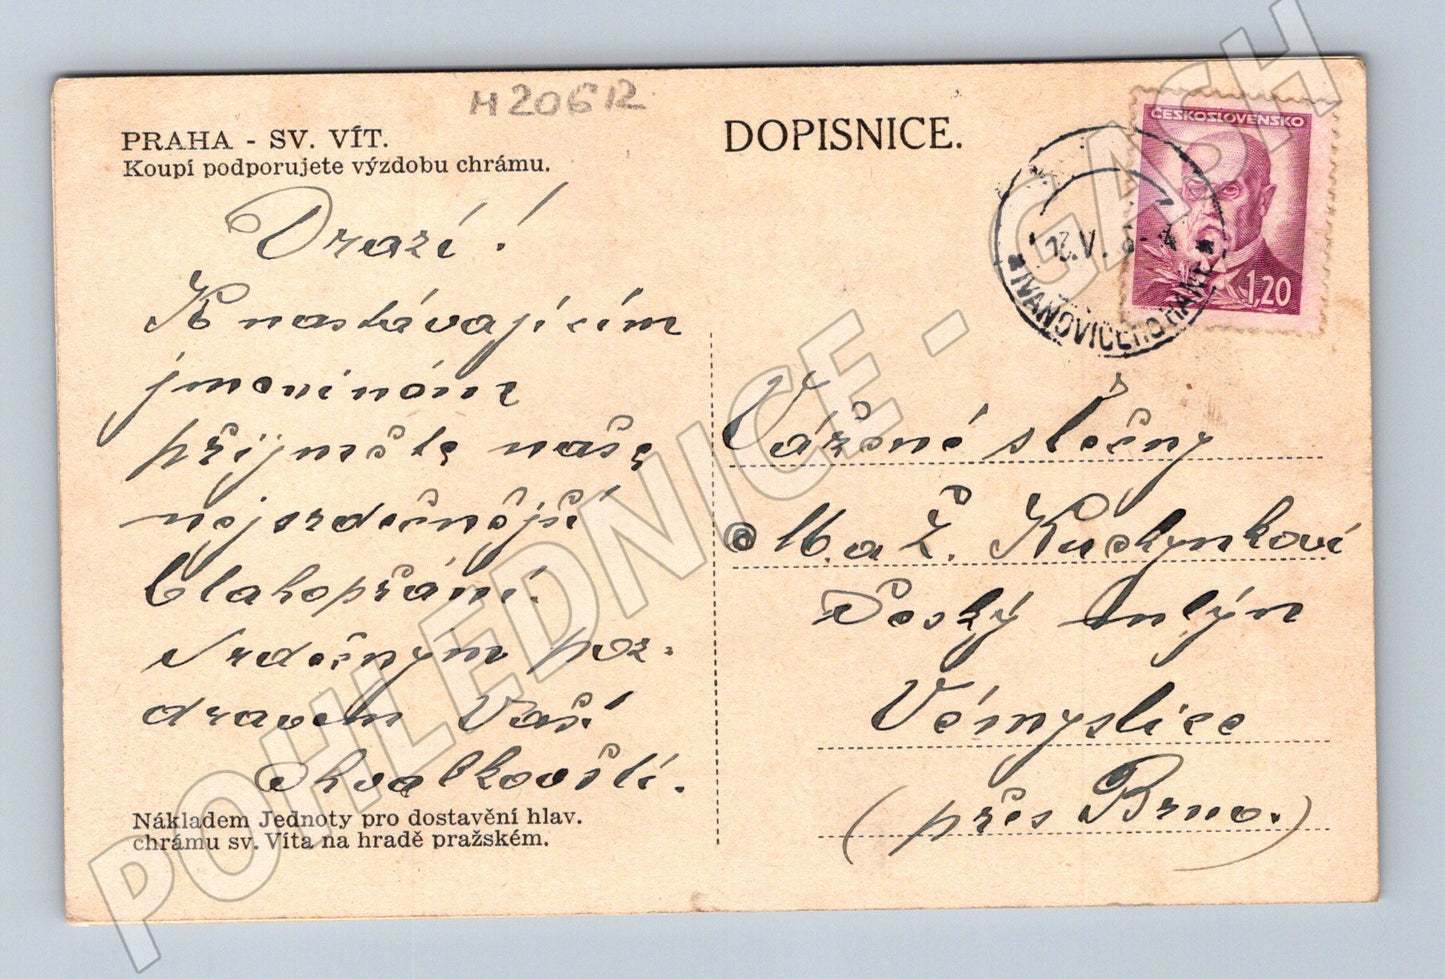 M 20612
PRAHA - SV. VÍT.
Koupí podporujete výzdobu chrámu.
DOPISNICE.
ČESKOSLOVENSKO
1,20
IVANOVICE NA HANÉ
Drazí!
K nastávajícím
jmeninám
přijměte naše
nejsrdečnější
blahopřání.
Srdečným poz-
dravem Vaši
Chvalkovští.
Nákladem Jednoty pro dostavění hlav.
chrámu sv. Víta na hradě pražském.
Vážené slečny
M. a Ž. Kuchynkoví
Český mlýn
Vémyslice
(přes Brno.)
POHLEDNICE - GASH